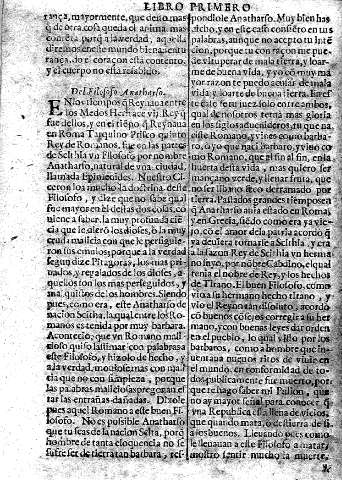 LIBRO PRIMERO
rança, mayormente, que de lo mas
q̃ de otra cosa queda el anima mas
contẽta porq̃ a la verdad, nadie
diremos en este mundo bienauẽtu-
rança, do el coraçon esta contento,
y el cuerpo no esta
Del Filosofo Anatharso.
EN los tiempos q̃ Reynauan entre
los Medos Rey q̃
fue dellos, y en el tiẽpo q̃ Reynaua
en Roma Tarquino Prisco, quinto
Rey de Romanos, fue en las partes
de Scithia vn Filosofo por nombre
Anatharso, natural de vna ciudad
llamada Epimenides. Nuestro Ci-
ceron loa mucho la dotrina deste
Filosofo, y dize que no sabe qual
fue mayor en el destas dos cosas, cõ-
uiene a saber, la muy profunda ciẽ-
cia que le dierõ los dioses, o la muy
cruda malicia con que le persiguie-
ron sus emulos, porque a la verdad
segun dize Pitagoras, los mas pri-
uados, y regalados de los dioses, a-
quellos son los mas perseguidos, y
mal quistos de los hombres. Siendo
pues, como era, este Anatharso de
nacion Scitha, la qual entre los Ro-
manos es tenida por muy barbara.
Acontecio, que vn Romano mali-
cioso quiso lastimar con palabras a
este Filosofo, y hizolo de hecho, y
a la verdad, mouiose mas con mali-
cia que no con simpleza, porque
las palabras maliciosas pregonan es-
tar las entrañas dañadas. Dixole
pues aquel Romano a este buen Fi-
losofo. No es possible Anatharso
que tu seas de nacion Scita, porq̃
hombre de tanta eloquencia no se
sufre ser de tierra tan barbara, res-
pondiole Anatharso. Muy bien has
dicho, y en este caso consiẽto en tus
palabras, aunque no accepto tu intẽ-
cion, porque tu con razon me pue-
des vituperar de mala tierra, y loar-
me de buena vida, y yo cõ muy ma-
yor razon te puedo acusar de mala
vida, y loarte de buena tierra. En es-
te caso se tu juez solo entre ambos,
qual de nosotros terna mas gloria
en los siglos aduenideros, tu que na-
ciste Romano, y viues como barba-
ro, o yo que naci barbaro, y viuo co-
mo Romano, que el fin al fin, en la
huerta desta vida, mas quiero ser
mançano verde, y lleuar fruta, que
no ser libano seco derramado por
tierra. Passados grandes tiempos q̃
Anatharso auia estado en Romas
y en Grecia, siẽdo como era ya vie-
jo, cõ el amor de la patria acordo q̃
ya deuiera tornarse a Scithia, y era
a la sazon Rey de Scithia vn herma-
no suyo, por nõbre Cadbino, el qual
tenia el nombre de Rey, y los hechos
de Tirano. El buen Filosofo, como
vio a su hermano hecho tirano, y
vio el Reyno tan dissoluto, acordo
cõ buenos cõsejos corregir a su her-
mano, y con buenas leyes dar orden
en el pueblo, lo qual visto por los
barbaros, y como a hombre que in-
uentaua nueuos ritos de viuir en
el mundo, en conformidad de to-
dos publicamente fue muerto, por-
que te hago saber mi Pulion, que
no ay mayor señal para conocer q̃
vna Republica esta llena de vicios,
que quando mata, o destierra de si
a los buenos. Lleuando pues como
lleuauan a este Filosofo a matar,
mostro sentir mucho la muerte,